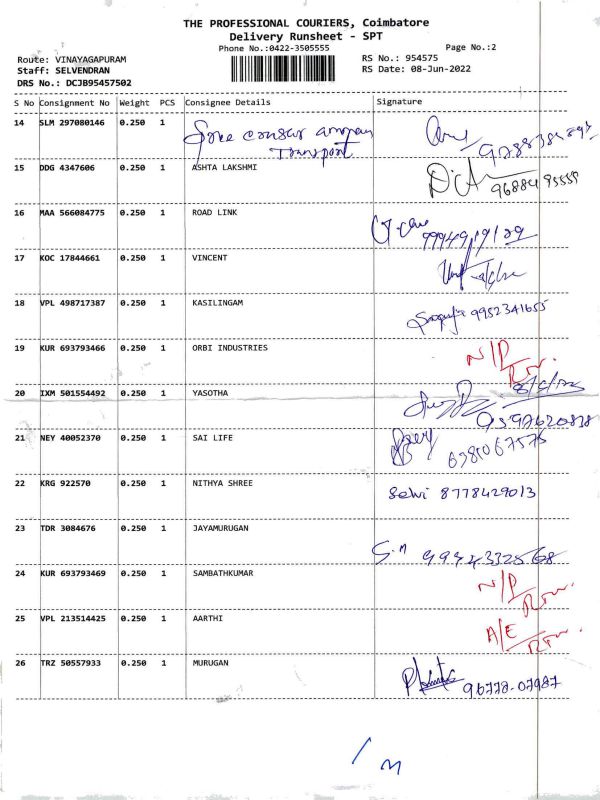 THE PROFESSIONAL COURIERS, Coimbatore
Delivery Runsheet - SPT
Phone No.:0422-3505555
Page No.:2
Route: VINAYAGAPURAM
RS No.: 954575
Staff: SELVENDRAN
RS Date: 08-Jun-2022
DRS No.: DCJB95457502
S No Consignment No Weight PCS Consignee Details Signature
14 SLM 297080146 0.250 1
Transport
15 DDG 4347606 0.250 1 ASHTA LAKSHMI
16 MAA 566084775 0.250 1 ROAD LINK
17 KOC 17844661 0.250 1 VINCENT
18 VPL 498717387 0.250 1 KASILINGAM 9952341655
19 KUR 693793466 0.250 1 ORBI INDUSTRIES N/P
20 IXM 501554492 0.250 1 YASOTHA
21 NEY 40052370 0.250 1 SAI LIFE
22 KRG 922570 0.250 1 NITHYA SHREE Selvi 8778429013
23 TDR 3084676 0.250 1 JAYAMURUGAN S.M 9994332568
24 KUR 693793469 0.250 1 SAMBATHKUMAR N/P
25 VPL 213514425 0.250 1 AARTHI A/E
26 TRZ 50557933 0.250 1 MURUGAN 96778-07987